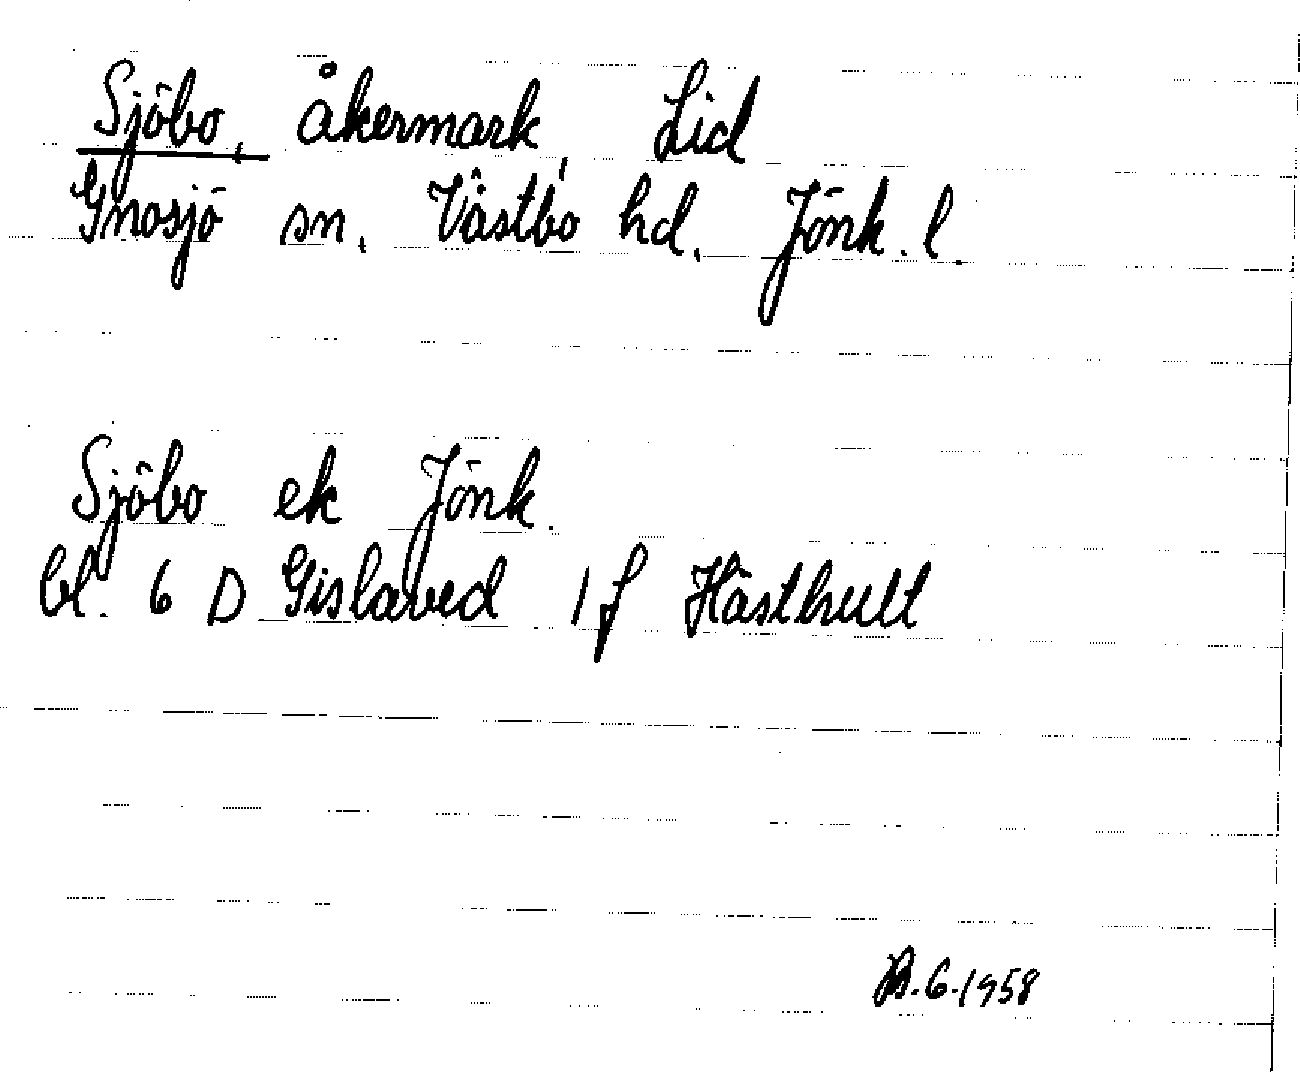 Sjöbo, åkermark, Lid
Gnosjö sn. Västbo hd. Jönk. l.
Sjöbo ek Jönk.
bl. 6 D Gislaved 1 f Hästhult
.6.1958